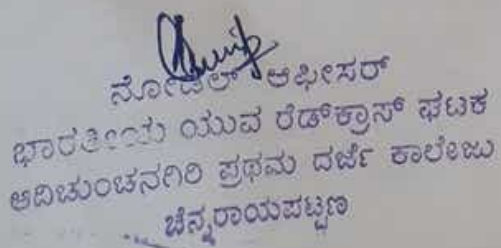 ನೋಡಲ್ ಆಫೀಸರ್
ಭಾರತೀಯ ಯುವ ರೆಡ್‌ಕ್ರಾಸ್ ಘಟಕ
ಆದಿಚುಂಚನಗಿರಿ ಪ್ರಥಮ ದರ್ಜೆ ಕಾಲೇಜು
ಚೆನ್ನರಾಯಪಟ್ಟಣ